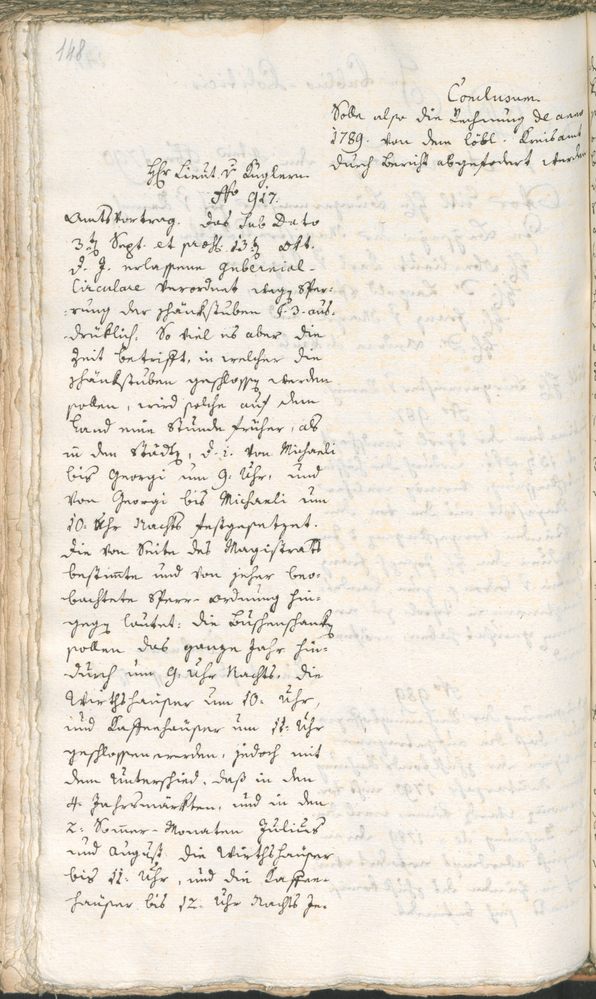 148
Conclusum.
Solle also die Rechnung de anno
1789. von dem löbl. Kreisamt
durch Bericht abgefodert werden
Hr Lieut. v Kuglern.
No 917.
Amtsvortrag. Das sub Dato
3t Sept. et praes. 13t Oct.
d. J. erlassene Gubernial-
Circulare verordnet wegen Sper-
rung der Schänkstuben §. 3. aus-
drüklich: So viel es aber die
Zeit betrifft, in welcher die
Schänkstuben geschlossen werden
sollen, wird solche auf dem
Land eine Stunde früher, als
in den Städten, d. i. von Michaeli
bis Georgi um 9. Uhr, und
von Georgi bis Michaeli um
10. Uhr Nachts festgesetzet.
Die von Seite des Magistrats
bestimte und von jeher beo-
bachtete Sperr-Ordnung hin-
gegen lautet: die Buschenschanken
sollen das ganze Jahr hin-
durch um 9. Uhr Nachts, die
Wirthshäuser um 10. Uhr,
und Kaffeehäuser um 11. Uhr
geschlossen werden, jedoch mit
dem Unterschied, daß in den
4. Jahrsmarkten, und in den
2. Sommer-Monaten Julius
und August die Wirthshäuser
bis 11. Uhr, und die Kaffee-
häuser bis 12. Uhr Nachts